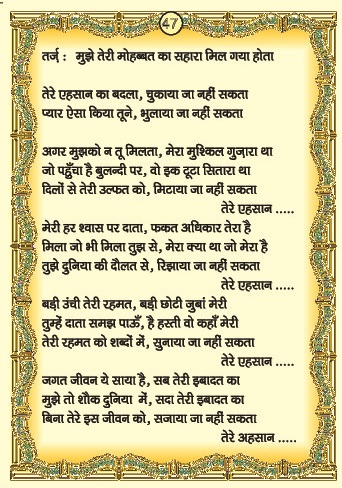 47
तर्ज़ : मुझे तेरी मोहब्बत का सहारा मिल गया होता
तेरे एहसान का बदला, चुकाया जा नहीं सकता
प्यार ऐसा किया तूने, भुलाया जा नहीं सकता
अगर मुझको न तू मिलता, मेरा मुश्किल गुज़ारा था
जो पहुँचा है बुलन्दी पर, वो इक टूटा सितारा था
दिलों से तेरी उल्फत को, मिटाया जा नहीं सकता
तेरे एहसान .....
मेरी हर श्वास पर दाता, फकत अधिकार तेरा है
मिला जो भी मिला तुझ से, मेरा क्या था जो मेरा है
तुझे दुनिया की दौलत से, रिझाया जा नहीं सकता
तेरे एहसान .....
बड़ी उंची तेरी रहमत, बड़ी छोटी जुबां मेरी
तुम्हें दाता समझ पाऊँ, है हस्ती वो कहाँ मेरी
तेरी रहमत को शब्दों में, सुनाया जा नहीं सकता
तेरे एहसान .....
जगत जीवन ये साया है, सब तेरी इबादत का
मुझे तो शौक दुनिया में, सदा तेरी इबादत का
बिना तेरे इस जीवन को, सजाया जा नहीं सकता
तेरे अहसान .....